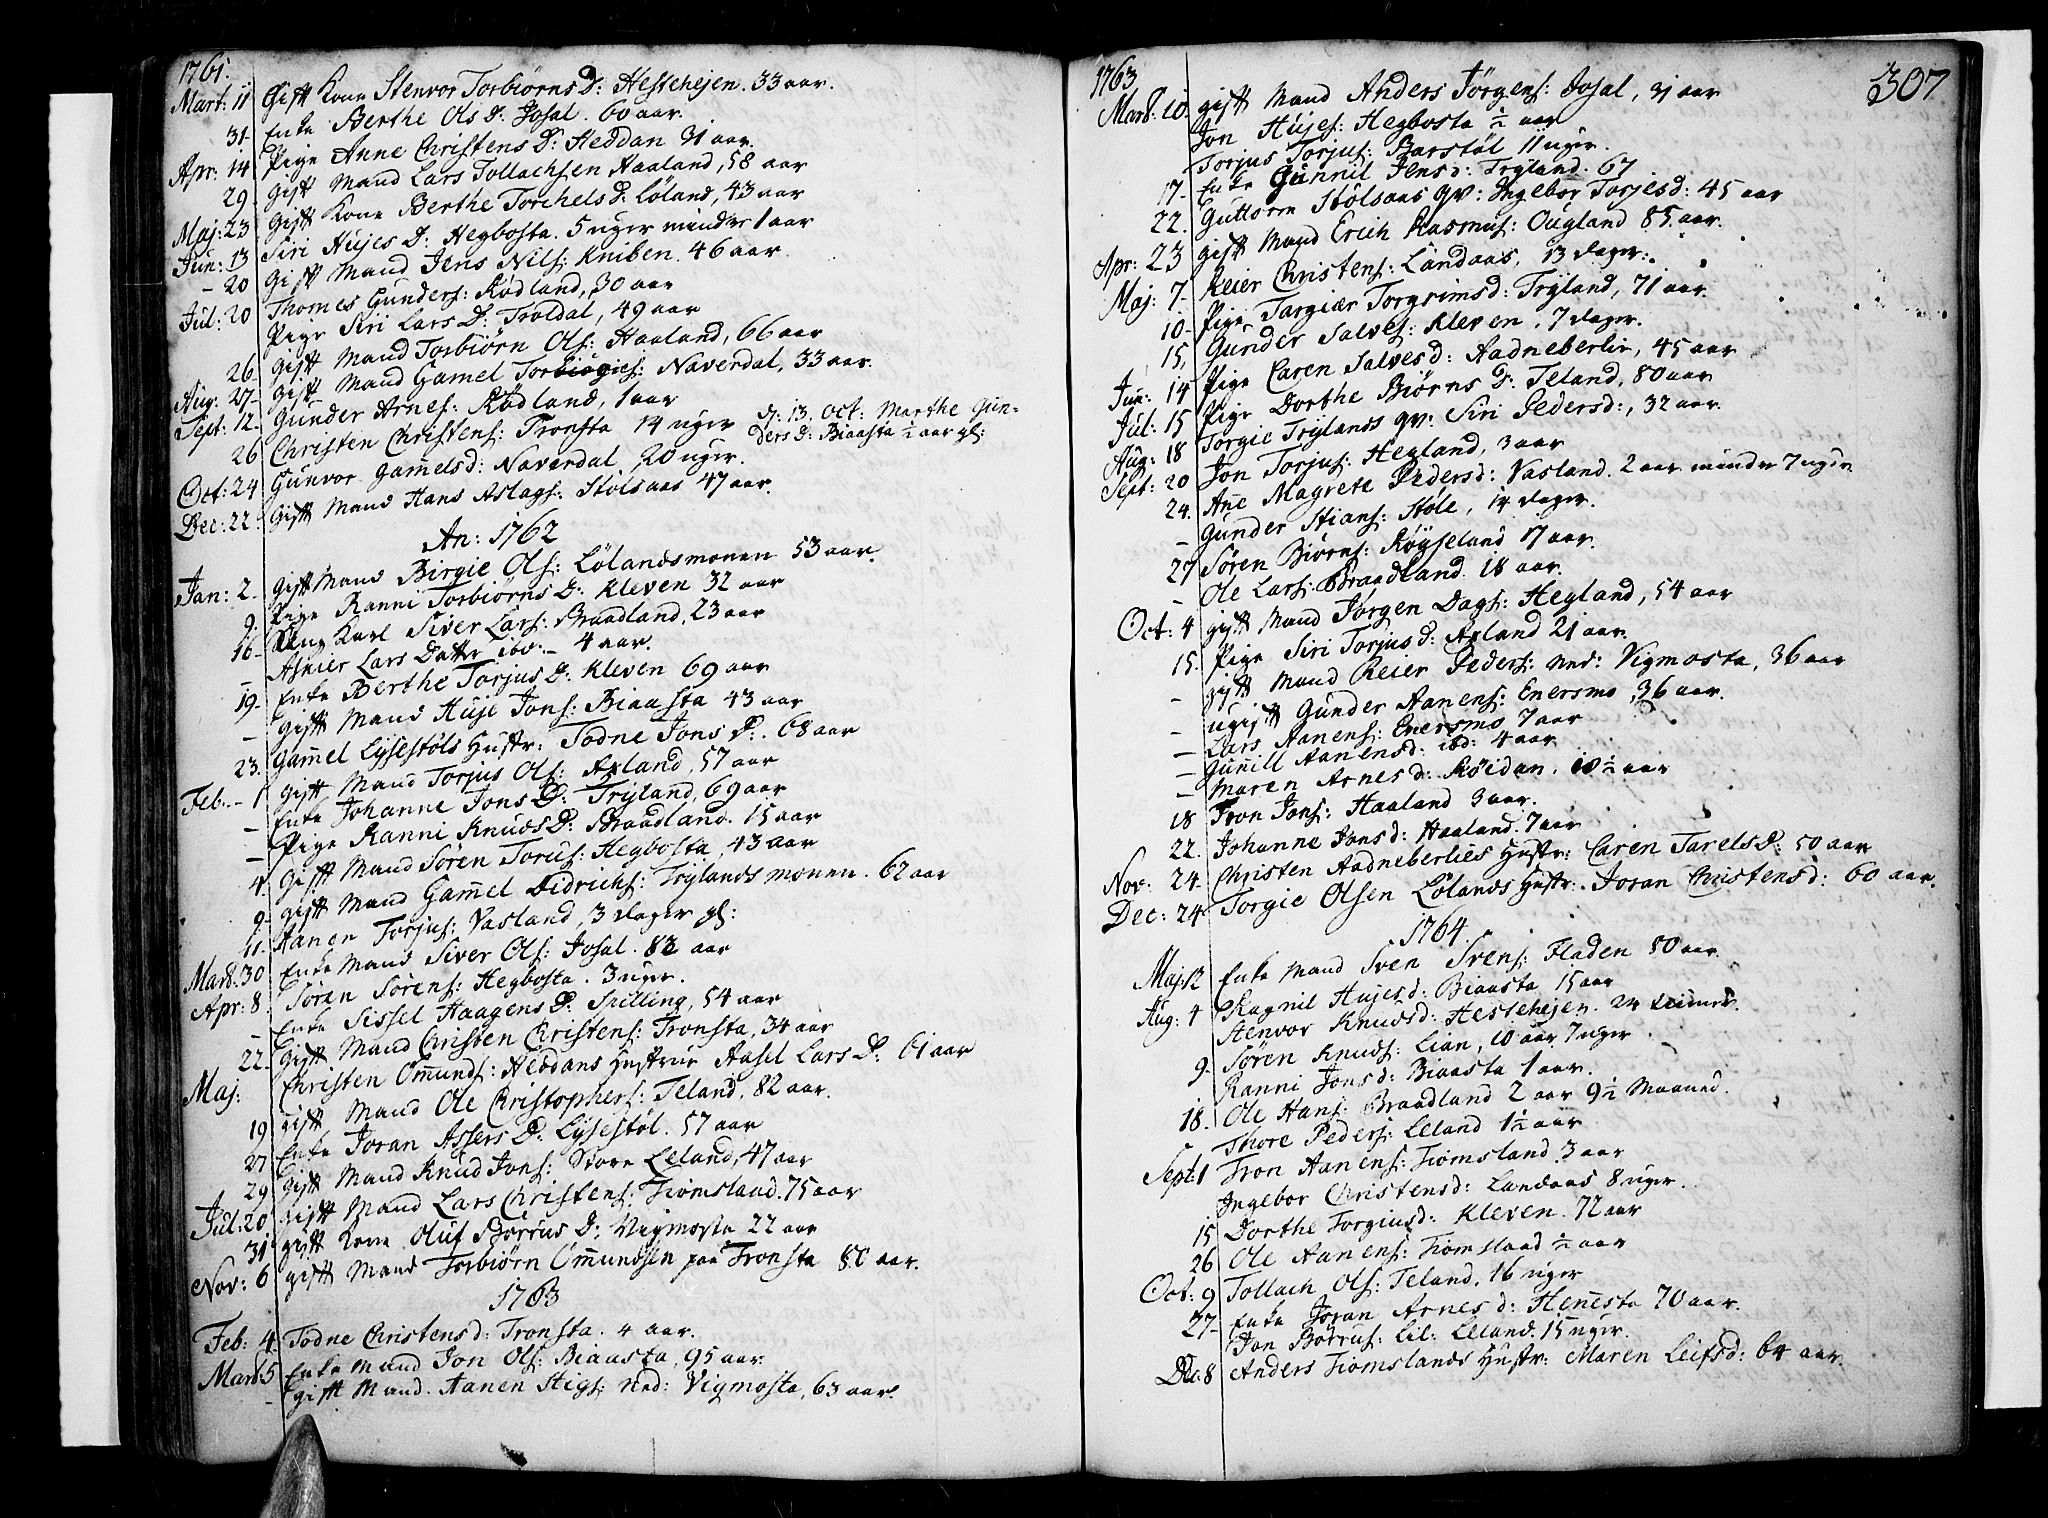 1761.
Mart: 11 Gift Kone Stenvor Torbiørns D: Hestehejen. 33 aar.
31. Enke Berthe Ols D: Josal. 60 aar.
Apr: 14 Pige Anne Christens D: Heddan 31 aar.
29. Gift Mand Lars Tollachsen Haaland, 58 aar
Maj: 23 Gift Kone Berthe Torchels D: Løland, 43 aar
Jun: 13 Siri Hujes D: Hegbosta. 5 uger minder 1 aar
- 20 Gift Mand Jens Nils: Kniben. 46 aar.
Jul: 20 Thomes Gunders: Rødland, 30 aar
Pige Siri Lars D: Troldal, 49 aar
26. Gift Mand Torbiørn Ols: Haaland, 66 aar
Aug: 27- Gift Mand Gamel Torbiørns: Naverdal, 33 aar.
Sept: 12. Gunder Arnes: Rødland, 1 aar
26 Christen Christens: Tronsta 14 uger
d: 13. Oct: Marthe Gun-
ders D: Biaasta ½ aar gl:
Oct: 24 Gunvor Gam̄elsd: Naverdal 20 uger.
Dec: 22. Gift Mand Hans Aslags: Stolsaas 47 aar.
An: 1762
Jan: 2. Gift Mand Birgie Ols: Lølandsmonen 53 aar.
9. Pige Ranni Torbiørns D: Kleven 32 aar
16- Ung Karl Siver Lars: Braadland, 23 aar
- Asnier Lars Datter ibd: - 4 aar.
19- Enke Berthe Torjus D: Kleven 69 aar
- Gift Mand Huje Jons: Biaasta 43 aar
23. Gam̄el Lysestøls Hustr: Todne Jons D:. 68 aar
Feb. - 1 Gift Mand Torjus Ols: Axland, 57 aar
- Enke Johanne Jons D: Trÿland, 69 aar
- Pige Ranni Knuds D: Braadland. 15 aar
4. Gift Mand Søren Torus: Hegbosta, 43 aar
9- Gift Mand Gam̄el Didrichs: Trÿlands monen. 62 aar
11. Aanen Torjus: Vasland, 3 dager gl:
Mard. 30 Enke Mand Siver Ols: Josal. 83 aar
Apr: 8 Søren Sørens: Hegbosta. 3 uger.
- Enke Sissel Haagens D: Spilling, 54 aar
22. Gift Mand Christen Christens: Tronsta, 34 aar
Maj: Christen Om̄unds: Heddans Hustrue Aasel Lars D: 61 aar
19 Gift Mand Ole Christophers: Teland, 82 aar.
27 Enke Joran Assers D: Lysestøl. 57 aar
29. Gift Mand Knud Jons: Store Leland, 47 aar
Jul: 20 Gift Mand Lars Christens: Tiomsland. 75 aar
31 gift Kone Oluf Børrus D: Vigmosta 22 aar
Nov: 6 gift Mand Torbiørn Om̄undsen paa Tronsta 80 aar.
1763
Feb: 4. Todne Christensd: Tronsta. 4 aar.
Mard: 5 Enke Mand Jon Ols: Biaasta, 95 aar.
- gift Mand. Aanen Stigs: Ned: Vigmosta, 63 aar.
1763 307
Mard. 10. gift Mand Anders Jørgens: Josal, 31 aar
Jon Hujes: Hegbosta ½ aar
Torjus Torjus: Barstøl 11 uger.
17- Enke Gunnil Jens D: Trÿland. 67
22. Guttorm Stolsaas qv: Ingebor Torjesd: 45 aar
Apr: 23 gift Mand Erich Rasmus: Ougland 85. aar.
Maj: 7- Reier Christens: Landaas, 13 dager.
10- Pige Targiær Torgrimsd: Trÿland, 71 aar.
15, Gunder Salves: Kleven. 7 dager.
Jun: 14 Pige Caren Salvesd: Aadneberlie, 45 aar
Jul: 15 Pige Dorthe Biørns D: Teland, 80 aar
Aug: 18 Torgie Trÿlands qv: Siri Pedersd:, 32 aar.
Sept: 20 Jon Torjus: Hegland, 3 aar
24. An̄e Magrete Pedersd: Vasland. 2 aar minder 7 uger
- Gunder Stians: Støle, 14 dager.
27 Søren Biørns: Røÿseland 17 aar.
- Ole Lars: Braadland. 18 aar.
Oct: 4 gift Mand Jørgen Dags: Hegland, 54 aar
15. Pige Siri Torjus D: Axland 21 aar.
- gift Mand Reier Peders: Ned: Vigmosta, 36 aar
- ugift Gunder Aanens: Enersmo, 36 aar.
- Lars Aanens: Enersmo 7 aar
- Gunnill Aanensd: ibd: 4 aar
- Maren Arnesd: Røidan, 10½ aar
18 Tron Jons: Haaland 3 aar.
22. Johanne Jonsd: Haaland. 7 aar
Nov: 24. Christen Aadneberlies Hustr: Caren Tarels D: 50 aar
Dec: 24 Torgie Olsen Lølands Hustr: Joran Christensd: 60 aar.
1764.
Maj: 12 Enke Mand Sven Svens: Fladen 80 aar.
Aug: 4 Ragnil Hujesd: Biaasta 15 aar
Stenvor Knudsd: Hestehejen. 24 timer.
9- Søren Knuds: Lian, 10 aar 7 uger
Ranni Jonsd: Biaasta 1 aar.
18. Ole Hans: Braadland 2 aar 9½ Maaned.
Thore Peders: Leland 1½ aar
Sept: 1 Tron Aanens: Tiomsland 3 aar
Ingebor Christensd: Landaas 8 uger.
15 Dorthe Torgiusd: Kleven. 72 aar
26 Ole Aanens: Tiomsland ½ aar
Oct: 9 Tollach Ols: Teland, 16 uger
27- Enke Joran Arnesd: Hen̄esta 70 aar.
Jon Børrus: Lil: Leland. 15 uger.
Dec. 8 Anders Tiomslands Hustr: Maren Leifsd: 64 aar.